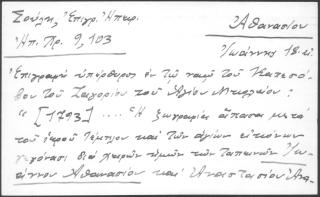 Σούλης, Ἐπιγρ. Ἠπειρ. Ἀθανασίου
Ἠπ. Χρ. 9, 103 Ἰωάννης 18-εί
Ἐπιγραφὴ ὑπέρθυρος ἐν τῷ ναῷ τοῦ Καπεσό-
βου τοῦ Ζαγορίου τοῦ Ἁγίου Νικολάου:
"[1793] .... Ἡ ζωγραφίες ἅπασαι μετὰ
τοῦ ἱεροῦ τέμπλου καὶ τῶν ἁγίων εἰκόνων
γεγόνασι διὰ χειρῶν ἡμῶν τῶν ταπεινῶν Ἰω-
άννου Ἀθανασίου καὶ Ἀναστασίου Ἀνα-